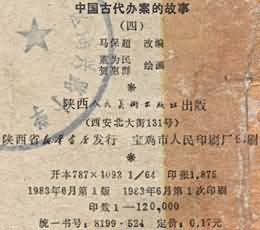 中国古代办案的故事
（四）
马保超 改编
董为民
贺恵群 绘画
陕西人民美术出版社出版
（西安北大街131号）
陕西省新华书店发行 宝鸡市人民印刷厂印刷
开本787×1092 1/64 印张1.875
1983年6月第1版 1983年6月第1次印刷
印数1—120,000
统一书号：8199·524 定价：0.17元